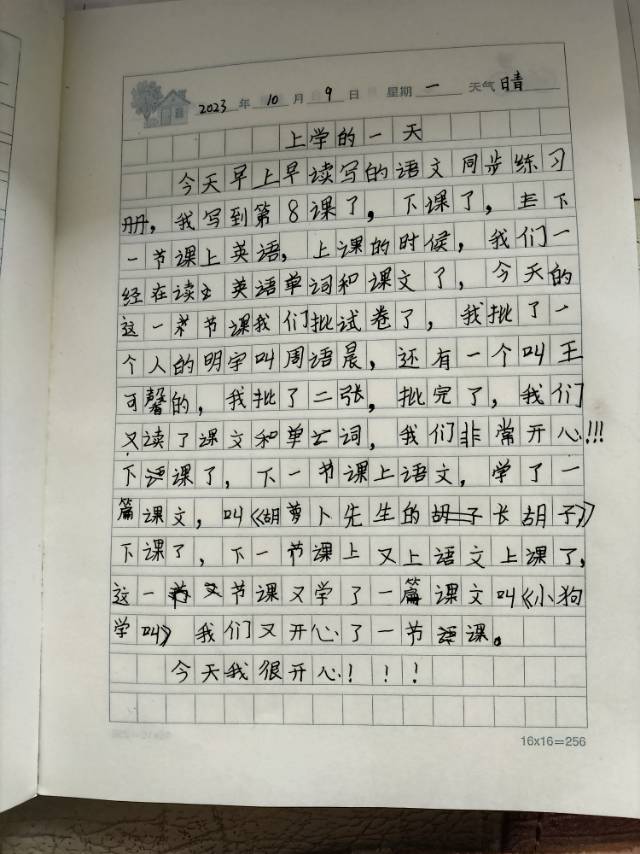 2023 年 10 月 9 日 星期 一 天气 晴
上学的一天
今天早上早读写的语文同步练习
册，我写到第8课了，下课了，下
一节课上英语，上课的时候，我们一
经在读英语单词和课文了，今天的
这一节课我们批试卷了，我批了一
个人的明字叫周语晨，还有一个叫王
可馨的，我批了二张，批完了，我们
又读了课文和单词，我们非常开心!!!
下课了，下一节课上语文，学了一
篇课文，叫《胡萝卜先生的长胡子》
下课了，下一节课上又上语文上课了，
这一节课又学了一篇课文叫《小狗
学叫》我们又开心了一节课。
今天我很开心！！！
16x16=256